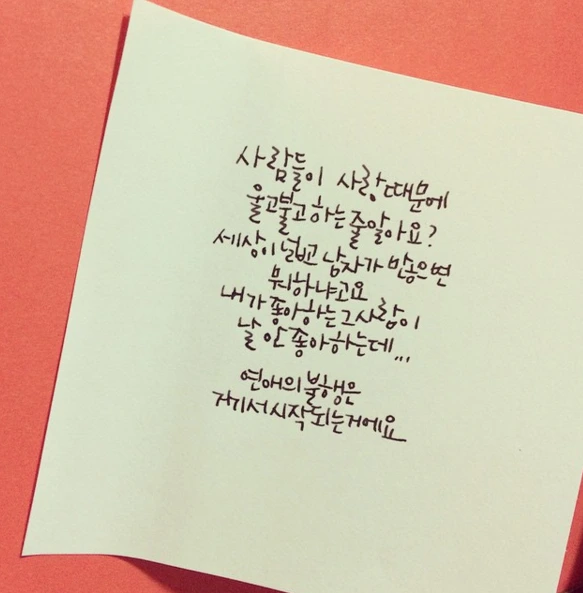 사람들이 사랑때문에
울고불고하는줄알아요?
세상이넓고 남자가 많으면
뭐하냐고요
내가 좋아하는그사람이
날 안 좋아하는데...
연애의불행은
거기서시작되는거에요